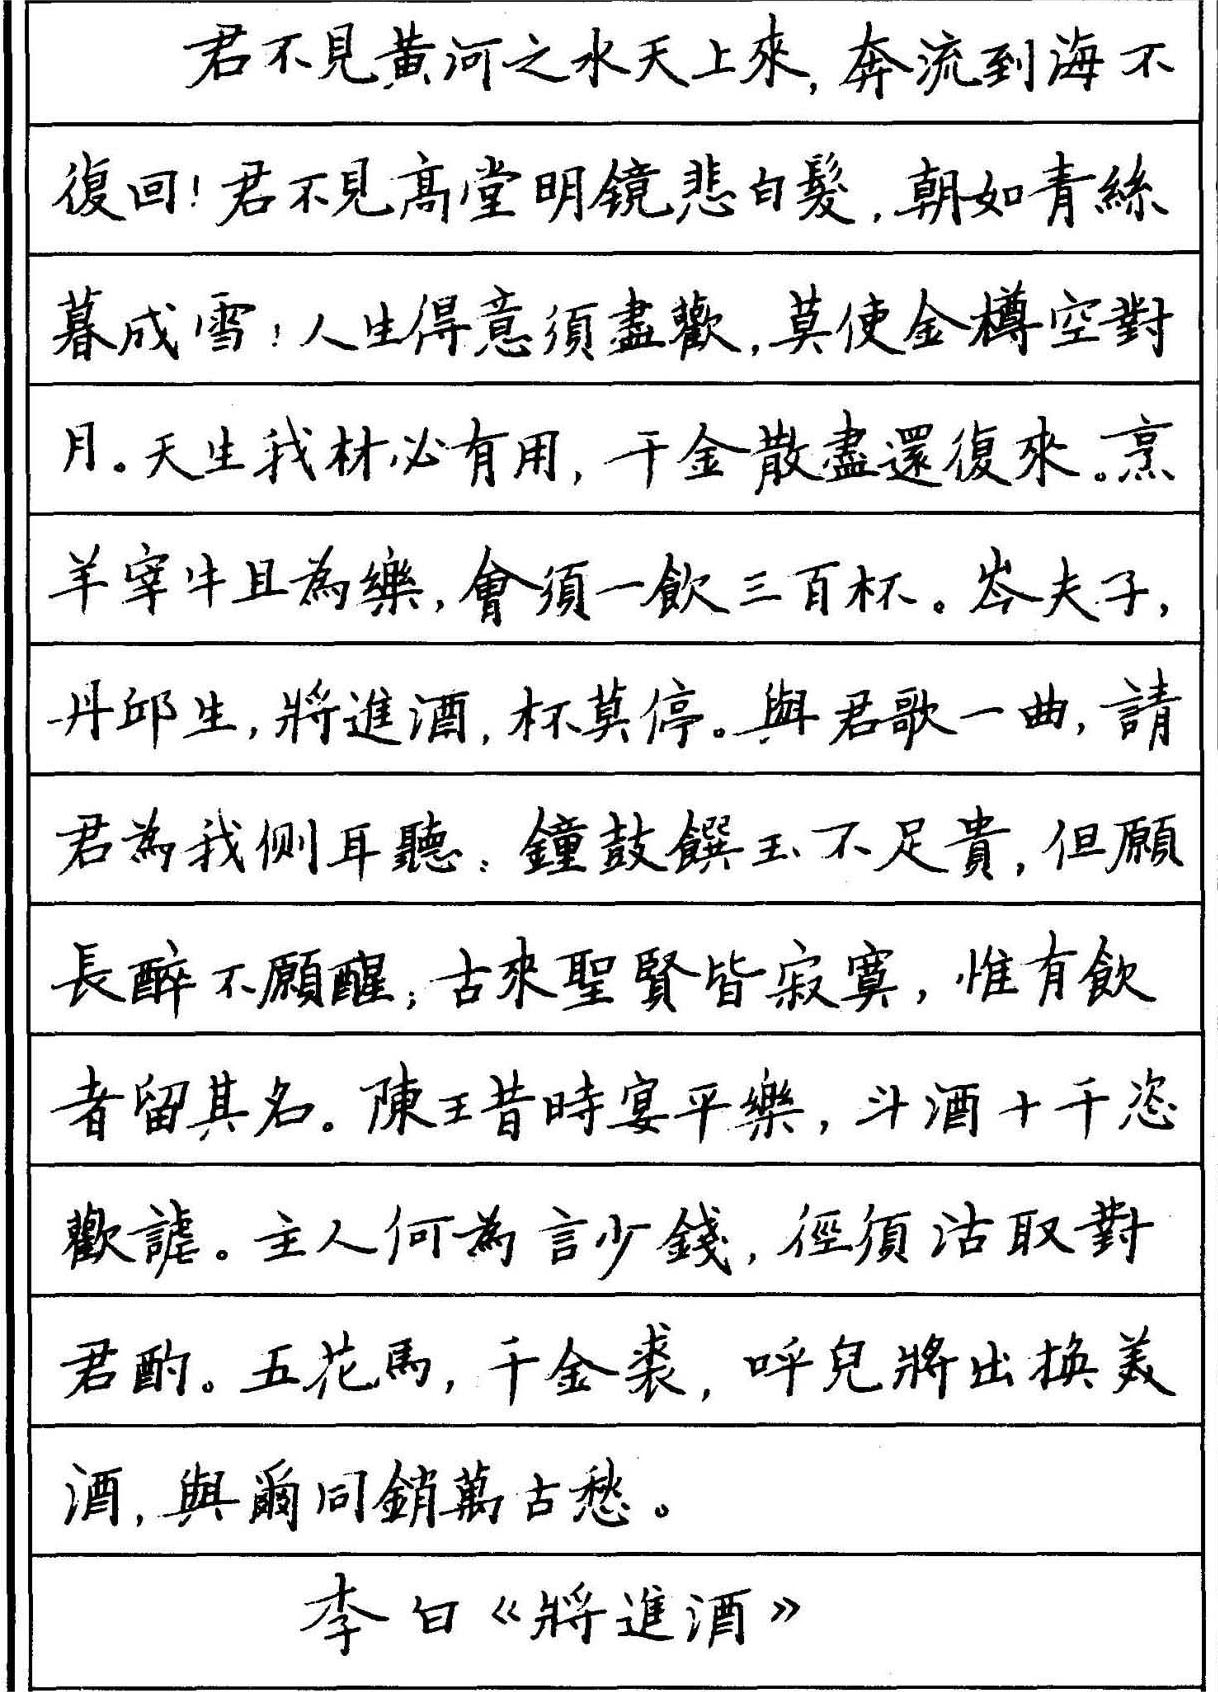 君不見黃河之水天上來，奔流到海不
復回！君不見高堂明鏡悲白髮，朝如青絲
暮成雪！人生得意須盡歡，莫使金樽空對
月。天生我材必有用，千金散盡還復來。烹
羊宰牛且為樂，會須一飲三百杯。岑夫子，
丹邱生，將進酒，杯莫停。與君歌一曲，請
君為我側耳聽：鐘鼓饌玉不足貴，但願
長醉不願醒；古來聖賢皆寂寞，惟有飲
者留其名。陳王昔時宴平樂，斗酒十千恣
歡謔。主人何為言少錢，徑須沽取對
君酌。五花馬，千金裘，呼兒將出換美
酒，與爾同銷萬古愁。
李白《將進酒》